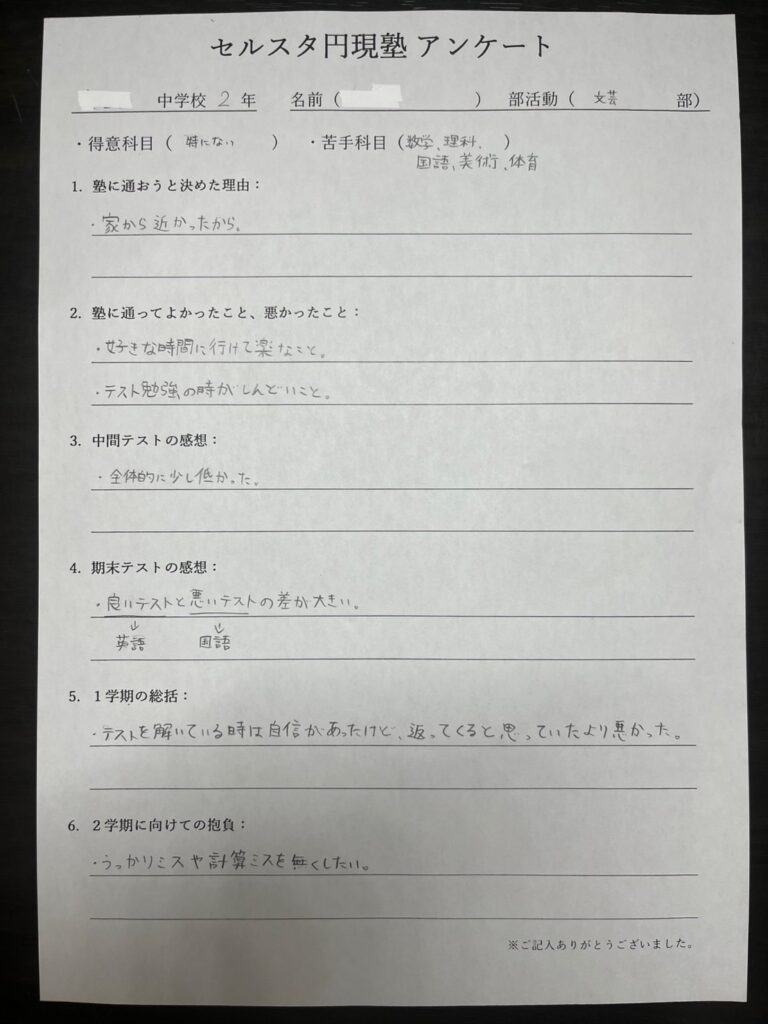 セルスタ円現塾 アンケート
中学校 2 年 名前( ) 部活動( 文芸 部)
・得意科目( 特にない ) ・苦手科目(数学、理科、)
国語、美術、体育
1. 塾に通おうと決めた理由：
・家から近かったから。
2. 塾に通ってよかったこと、悪かったこと：
・好きな時間に行けて楽なこと。
・テスト勉強の時がしんどいこと。
3. 中間テストの感想：
・全体的に少し低かった。
4. 期末テストの感想：
・良いテストと悪いテストの差が大きい。
↓ ↓
英語 国語
5. 1学期の総括：
・テストを解いている時は自信があったけど、返ってくると思っていたより悪かった。
6. 2学期に向けての抱負：
・うっかりミスや計算ミスを無くしたい。
※ご記入ありがとうございました。